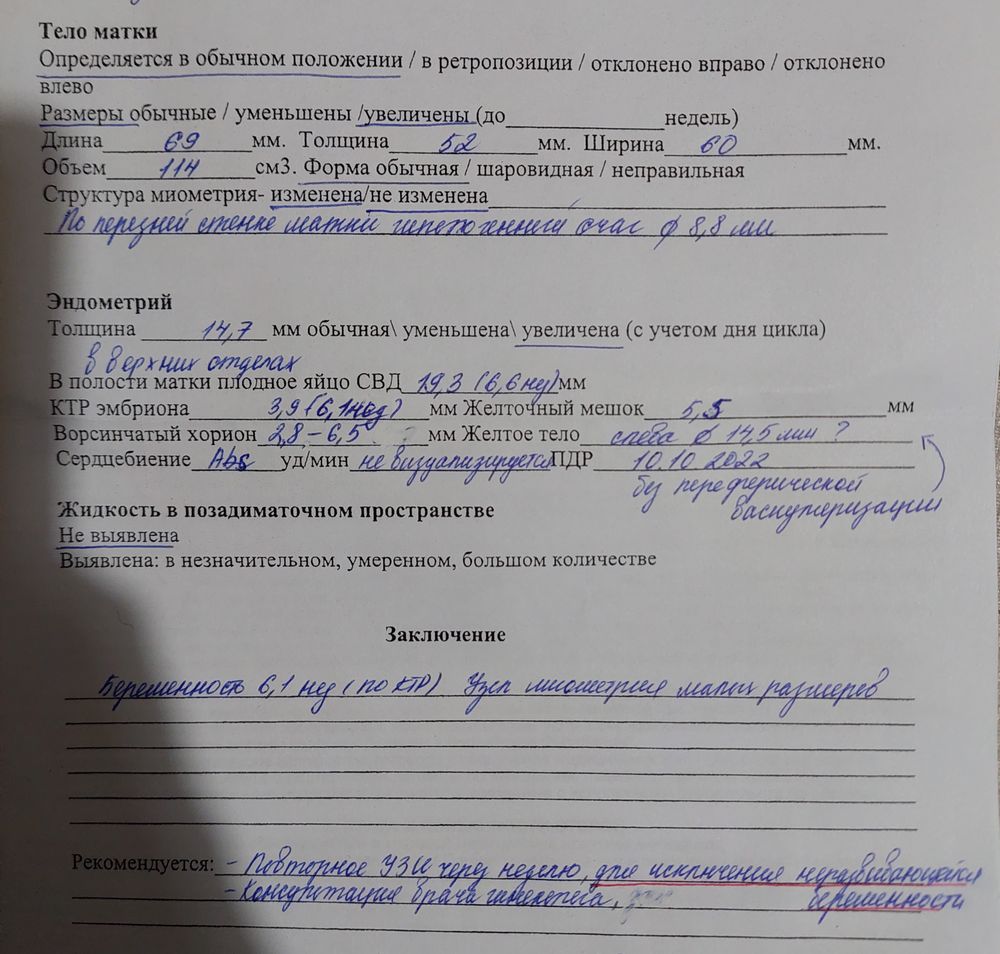 Тело матки
Определяется в обычном положении / в ретропозиции / отклонено вправо / отклонено
влево
Размеры обычные / уменьшены /увеличены (до____________недель)
Длина 69 мм. Толщина 52 мм. Ширина 60 мм.
Объем 114 см3. Форма обычная / шаровидная / неправильная
Структура миометрия- изменена/не изменена
По передней стенке матки гипоэхогенный очаг ϕ 8,8 мм
Эндометрий
Толщина 14,7 мм обычная\ уменьшена\ увеличена (с учетом дня цикла)
в верхних отделах
В полости матки плодное яйцо СВД 19,3 (6,6 нед) мм
КТР эмбриона 3,9 (6,1 нед) мм Желточный мешок 5,5 мм
Ворсинчатый хорион 2,8 – 6,5 мм Желтое тело слева ϕ 14,5 мм ?
Сердцебиение Abs уд/мин не визуализируется ПДР 10.10.2022
без переферической
васкуляризации
Жидкость в позадиматочном пространстве
Не выявлена
Выявлена: в незначительном, умеренном, большом количестве
Заключение
Беременность 6,1 нед (по КТР) Узел миометрия малых размеров
Рекомендуется: - Повторное УЗИ через неделю, для исключения неразвивающейся
- Консультация врача гинеколога, беременности